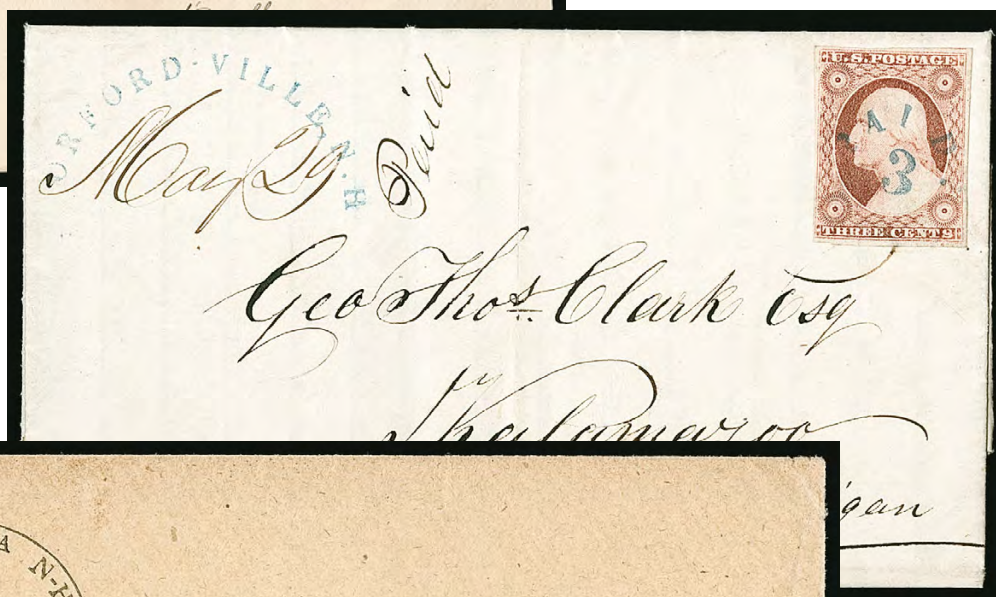 ORFORD-VILLE, N.H
May 29
Paid
U.S. POSTAGE
PAID
3
THREE CENTS
Geo Thos. Clark Esq
Kalamazoo
igan
A N-H